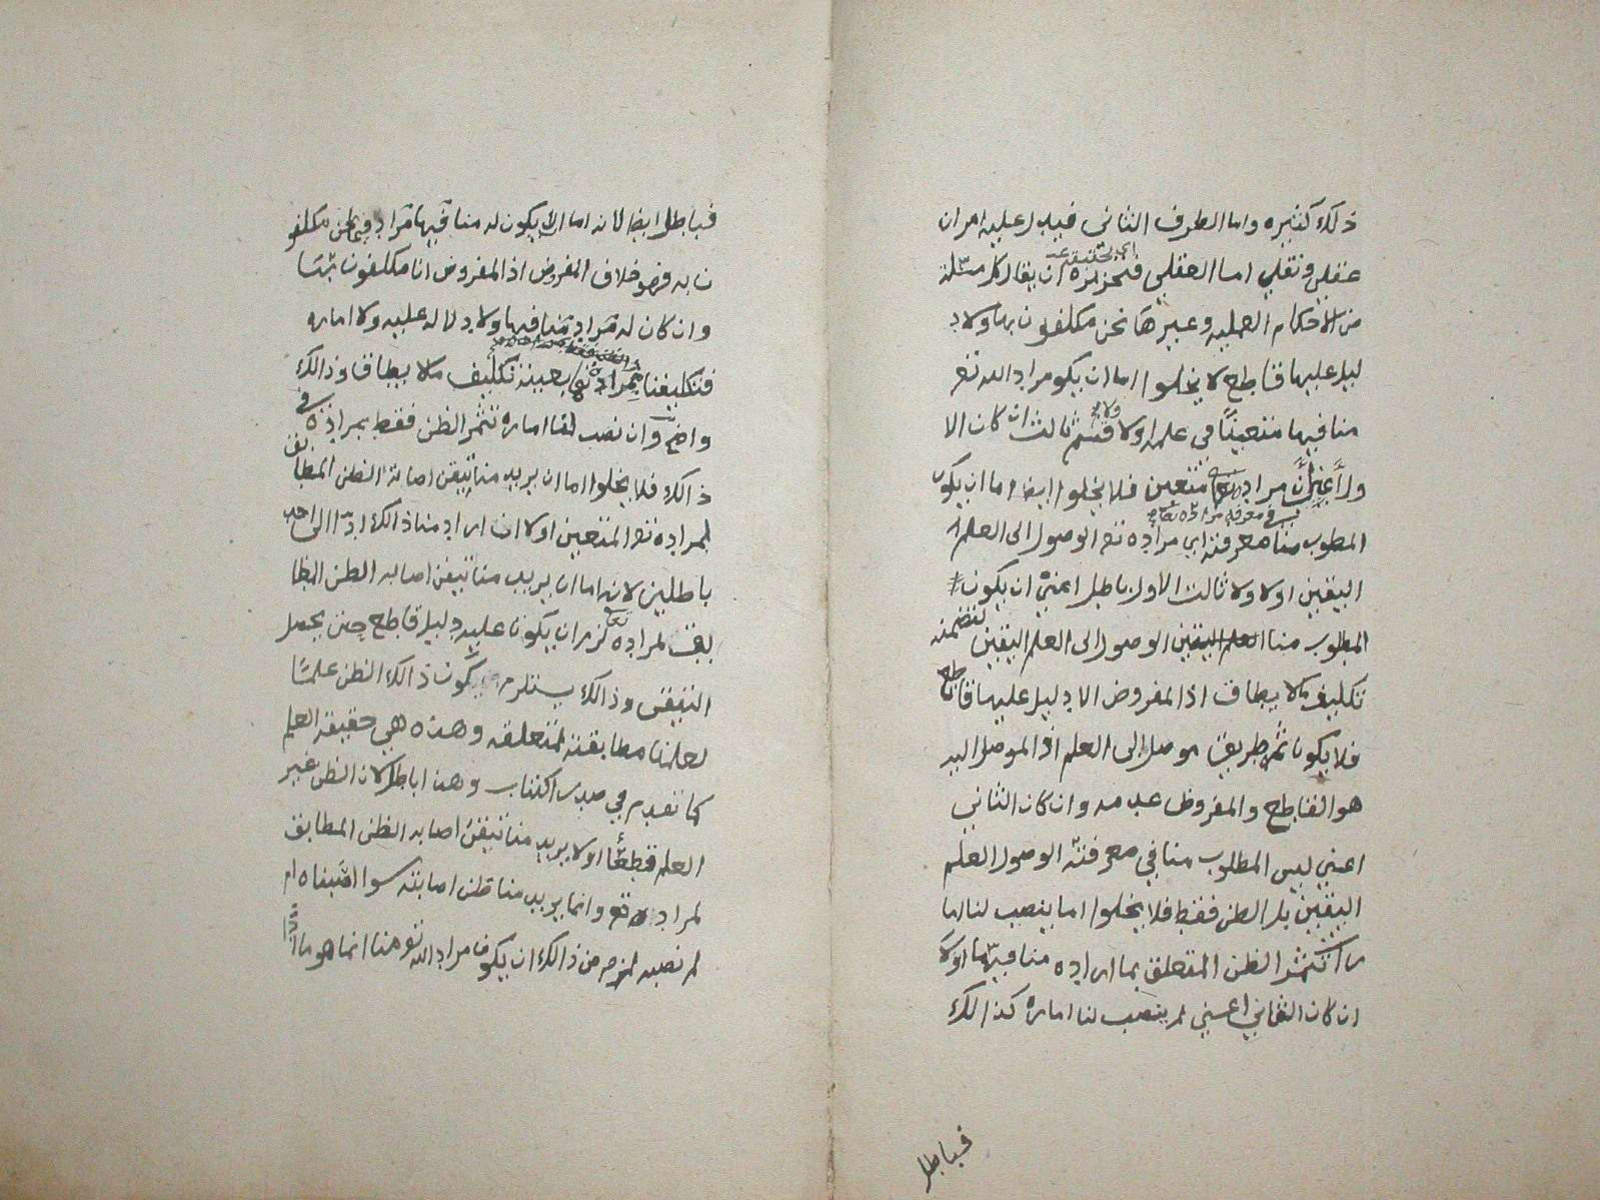 ذلك كثيره واما الطرف الثاني فيدل عليه امران
عقلي ونقلي اما العقلي فتحريره ان يقال كل مسئلة
من الاحكام العمليه وغيرها نحن مكلفون بها ولا د
ليل عليها قاطع لا يخلوا اما ان يكو مراد الله تع
منا فيها متعينًا في علمه اولا ولا قسم ثالث ان كان الا
ول اعني ان مراد متعين فلا يخلوا ايضا اما ان يكون
المطلوب منا معرفته اي مراده تع الوصول الى العلم
اليقين اولا ولا ثالث الاول باطل اعني ان يكون
المطلوب منا الوصول الى العلم اليقين لتضمنه
تكليف مالا يطاق اذ المفروض الا دليل عليها قاطع
فلا يكون ثم طريق موصل الى العلم اذ الموصل اليه
هو القاطع والمفروض عدمه وان كان الثاني
اعني ليس المطلوب منا في معرفته الوصول العلم
اليقين بل الظن فقط فلا يخلوا اما ينصب لنا اما
رة تثمر الظن المتعلق بما اراده منا فيها اولا
ان كان الثاني اعني لم ينصب لنا اماره كذالك
فباطل
فباطل ايضا لانه اما الا يكون له منا فيها مراد فنحن مكلفو
ن به فهو خلاف المفروض اذ المفروض انا مكلفون
وان كان له مراد منا فيها ولا دلاله عليه ولا اماره
فتكليفنا بمراده تع بعينه تكليف مالا يطاق وذالك
واضح وان نصب لنا اماره تثمر الظن فقط بمراده في
ذالك فلا يخلوا اما ان يريد منا تيقن اصابة الظن المطابق
لمراده تع المتعين اولا ان اراد منا ذالك ادّا الى احد
باطلين لانه اما ان يريد منا تيقن اصابه الظن المطا
بق لمراده تع لزم ان يكون عليه دليل قاطع حتى يحصل
التيقن وذالك يستلزم كون ذالك الظن علمًا
لعلمنا مطابقته لمتعلقه وهذه هي حقيقة العلم
كما تقدم في صدر الكتاب وهذا باطل لان الظن غير
العلم قطعًا اولا يريد منا تيقن اصابه الظن المطابق
لمراده تع وانما يريد منا ظن اصابته سوا اصبناه ام
لم نصبه لزم من ذالك ان يكون مراد الله تع منا انما هو ما